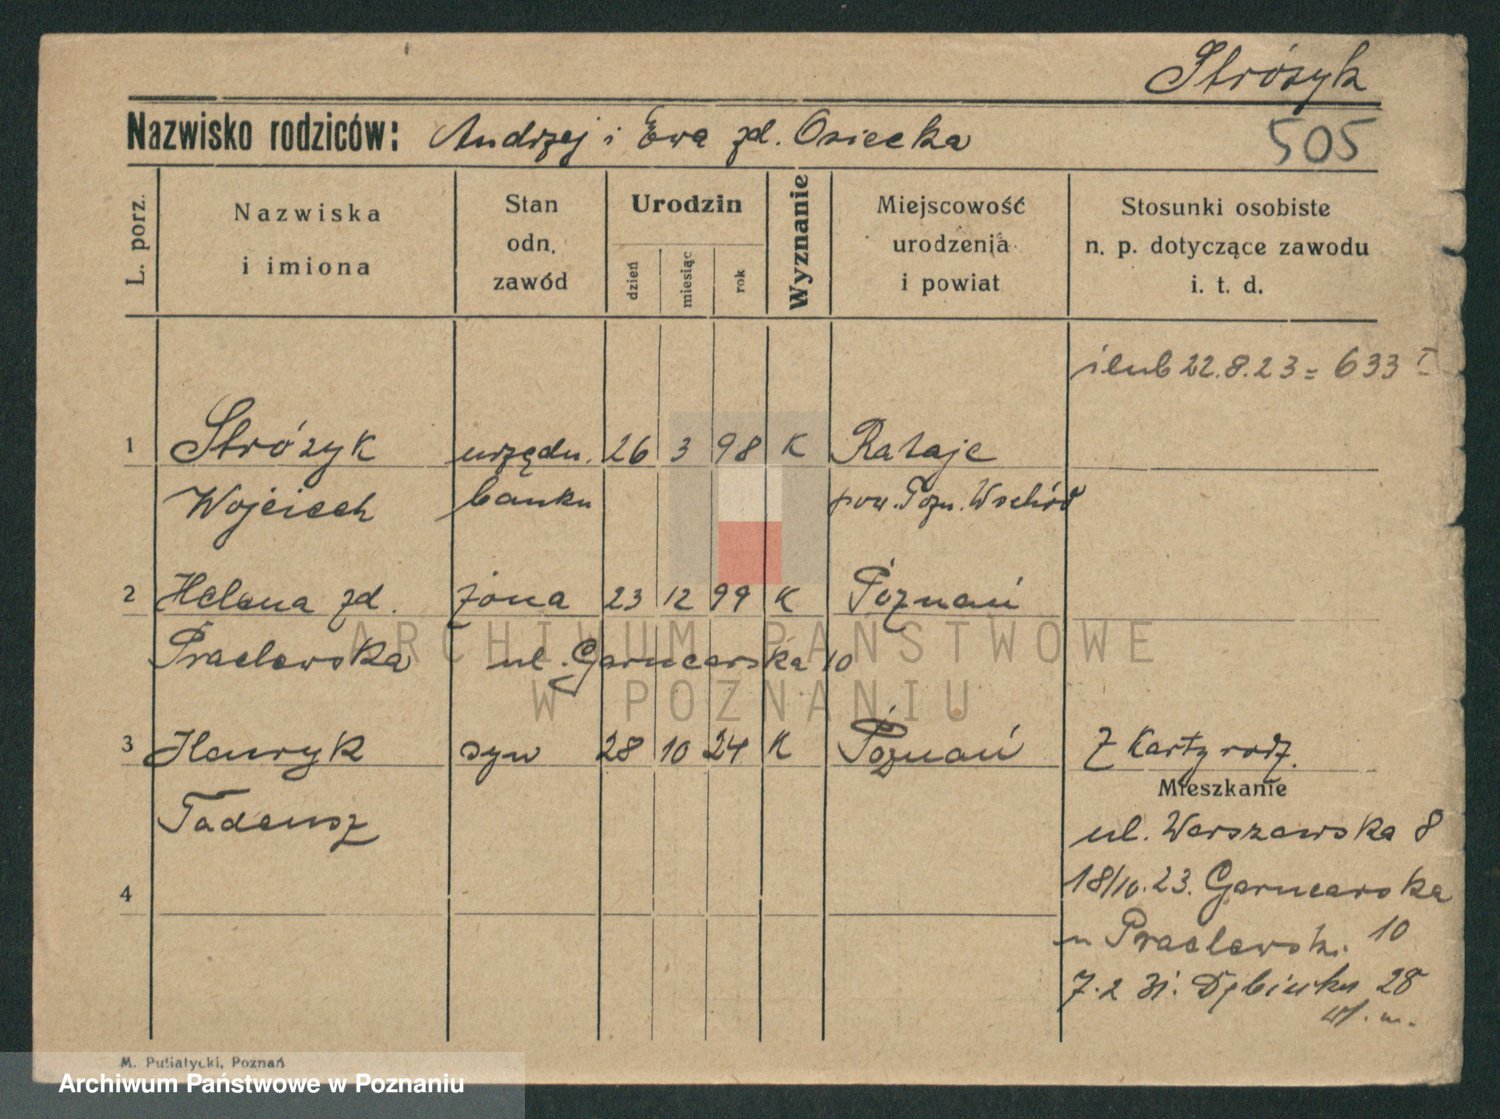 Strózyk
Nazwisko rodziców: Andrzej i Ewa zd. Osiecka
505
L. porz.
Nazwiska
i imiona
Stan
odn.
zawód
Urodzin
dzień
miesiąc
rok
Wyznanie
Miejscowość
urodzenia
i powiat
Stosunki osobiste
n. p. dotyczące zawodu
i. t. d.
22.8.23 = 633 I
1 Strózyk urzędn. 26 3 98 K Rataje
Wojciech banku pow. Pozn. Wschód
2 Helena zd. żona 23 12 99 K Poznań
Praclewska ul. Garncarska 10
3 Henryk syn 28 10 24 K Poznań Z Karty rodz.
Tadeusz
Mieszkanie
ul. Warszawska 8
4
18/10.23. Garncarska
10
Praclewski
7.2 31. Dębińska 28
ARCHIWUM PAŃSTWOWE
W POZNANIU
M. Pusiatycki, Poznań
Archiwum Państwowe w Poznaniu